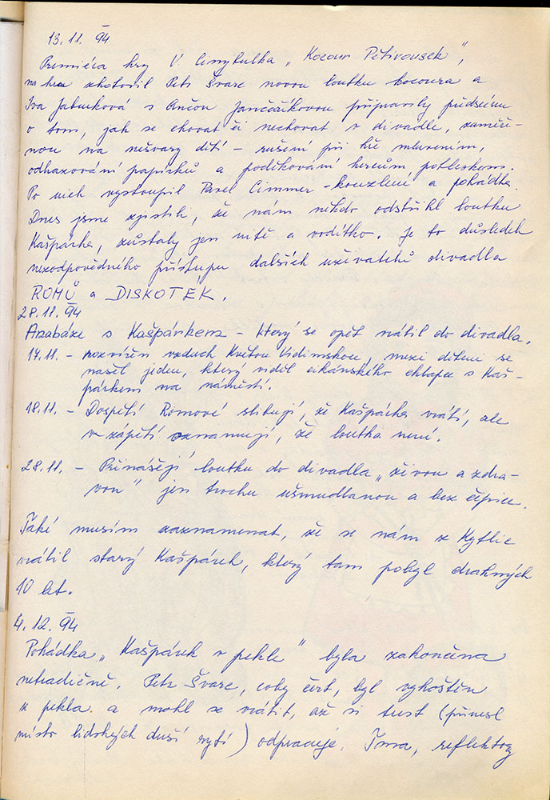 13. 11. 94
Premiéra hry V. Cinybulka „Kocour Pětivousek",
na hru zhotovil Petr Švarc novou loutku kocoura a
Iva Jabůrková s Ančou Jančaříkovou připravily předscénu
o tom, jak se chovat či nechovat v divadle, zaměře-
nou na nešvary dětí – rušení při hře mluvením,
odhazování papírků a poděkování hercům potleskem.
Po nich vystoupil Pavel Cimmer – kouzlení a pohádka.
Dnes jsme zjistili, že nám někdo odstřihl loutku
Kašpárka, zůstaly jen nitě a vodítko. Je to důsledek
nezodpovědného přístupu dalších uživatelů divadla
ROMŮ a DISKOTEK.
28. 11. 94
Anabáze s Kašpárkem – který se opět vrátil do divadla.
14. 11. – rozvířen vzduch Květou Vidimskou, mezi dětmi se
našel jeden, který viděl cikánského chlapce s Kaš-
párkem na náměstí.
18. 11. – Dospělí Romové slibují, že Kašpárka vrátí, ale
v zápětí oznamují, že loutka není.
28. 11. – Přinášejí loutku do divadla „živou a zdra-
vou" jen trochu ušmudlanou a bez čepice.
Také musím zaznamenat, že se nám z Kytlic
vrátil starý Kašpárek, který tam pobyl drahných
10 let.
4. 12. 94
Pohádka „Kašpárek v pekle" byla zakončena
netradičně. Petr Švarc, coby čert, byl vyhoštěn
z pekla a mohl se vrátit, až si trest (přinesl
místo lidských duší myší) odpracuje. Tma, reflektory